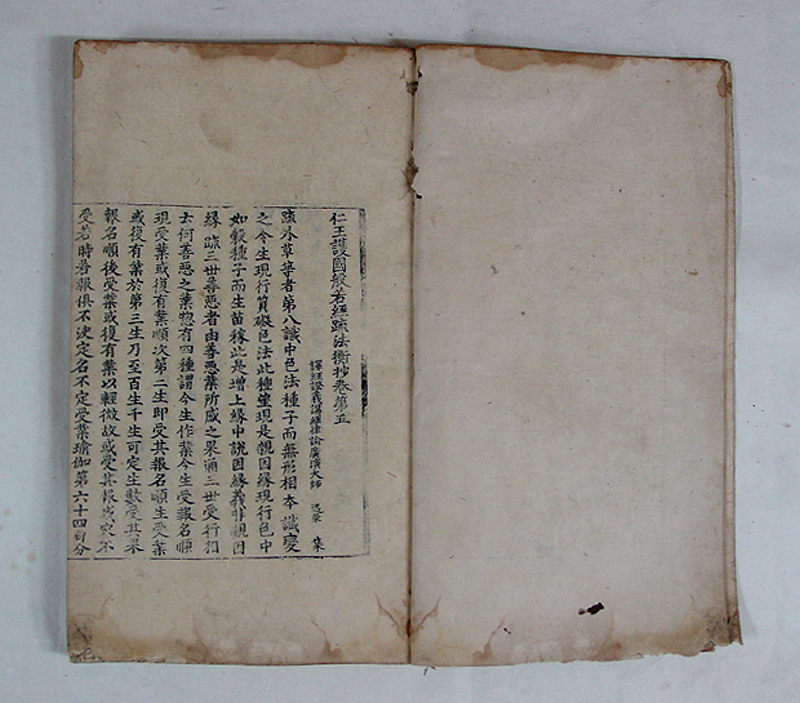 仁王護國般若經疏法衡抄卷第五
譯經證義講經律論廣演大師 遇榮 集
疏外草等者第八識中色法種子而無形相本識變
之令生現行質礙色法此種望現是親因緣現行色中
如穀種子而生苗稼此是增上緣中說因緣義非親因
緣 疏三世善惡者由善惡業所感之果通三世受行相
云何善惡之業惣有四種謂今生作業今生受報名順
現受業或復有業順次第二生即受其報名順生受業
或復有業於第三生乃至百生千生可定生數受其果
報名順後受業或復有業以輕微故或受其報或不
受若時若報俱不決定名不定受業瑜伽第六十四自分